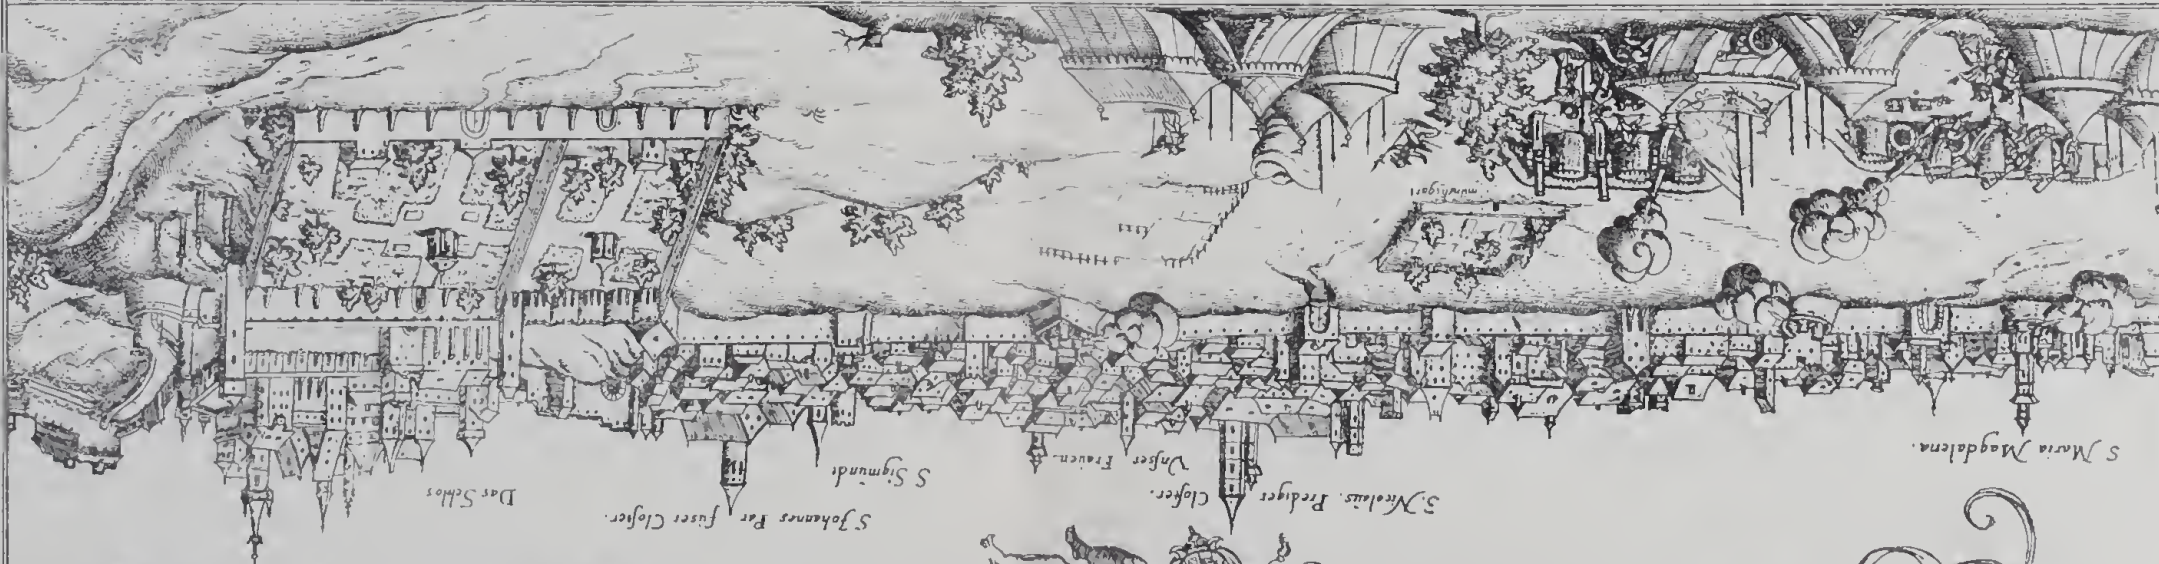 S Maria Magdalena.
S. Nicolaus. Prediger
Cloſter.
Vnſer Frauen.
S Sigmundt
S Johannes Par fuſer Cloſter.
Das Schlos